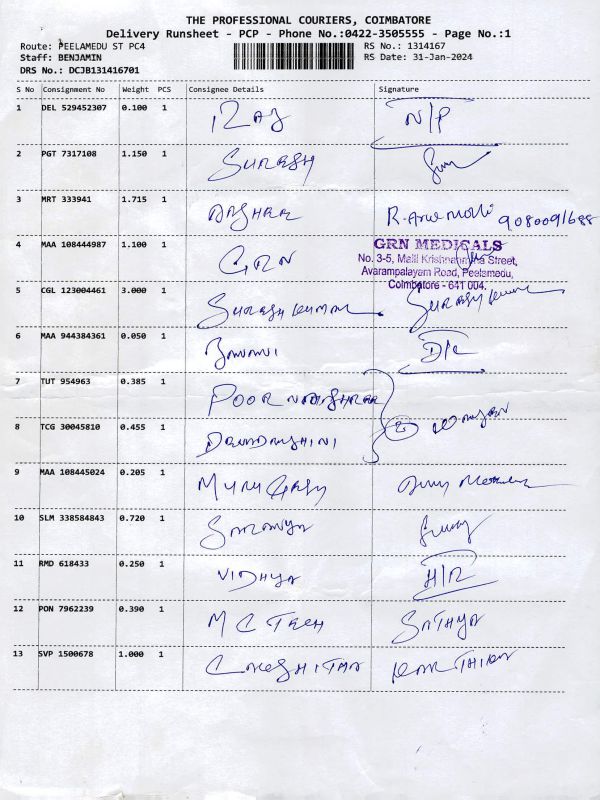 THE PROFESSIONAL COURIERS, COIMBATORE
Delivery Runsheet - PCP - Phone No.:0422-3505555 - Page No.:1
Route: PEELAMEDU ST PC4 RS No.: 1314167
Staff: BENJAMIN RS Date: 31-Jan-2024
DRS No.: DCJB131416701
S No Consignment No Weight PCS Consignee Details Signature
1 DEL 529452307 0.100 1 RAJ N/P
2 PGT 7317108 1.150 1 SURESH
3 MRT 333941 1.715 1 9080091688
4 MAA 108444987 1.100 1 GRN GRN MEDICALS
No. 3-5, Malli Krishnamma Street,
Avarampalayam Road, Peelamedu,
Coimbatore - 641 004.
5 CGL 123004461 3.000 1 SURESH KUMAR SURESH KUMAR
6 MAA 944384361 0.050 1 D/L
7 TUT 954963 0.385 1
8 TCG 30045810 0.455 1 2
9 MAA 108445024 0.205 1 MURUGESH
10 SLM 338584843 0.720 1 SARANYA
11 RMD 618433 0.250 1 VIDHYA H/R
12 PON 7962239 0.390 1 M C TECH SATHYA
13 SVP 1500678 1.000 1